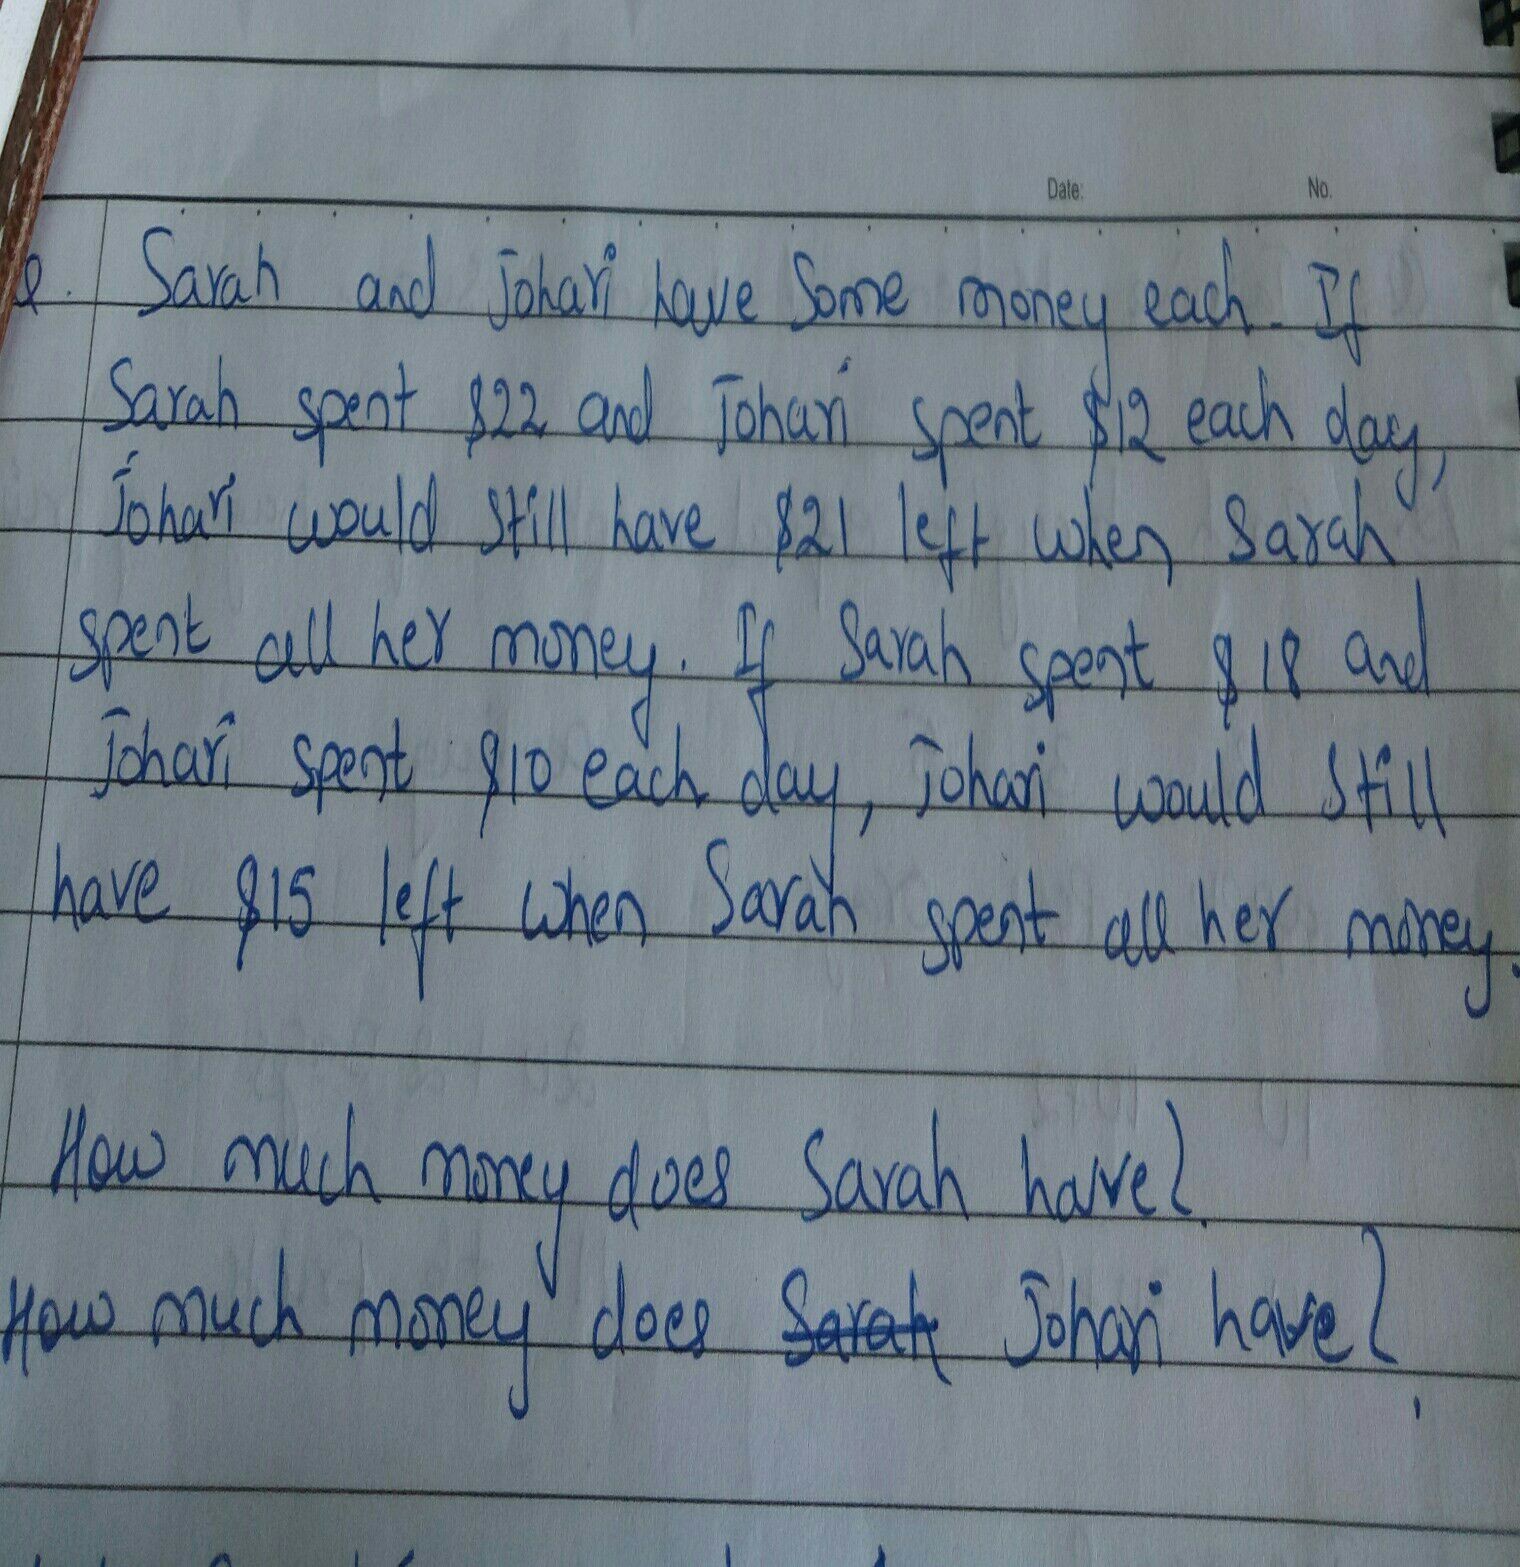 Date:
No.
Q. Sarah and Johari have Some money each. If
Sarah spent $22 and Johari spent $12 each day,
Johari would still have $21 left when Sarah
spent all her money. If Sarah spent $18 and
Johari spent $10 each day, Johari would still
have $15 left when Sarah spent all her money.
How much money does Sarah have?
How much money does Sarah Johari have?